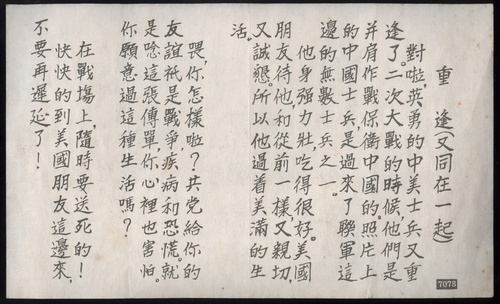 重逢(又同在一起)
對啦,英勇的中美士兵又重
逢了。二次大戰的時候,他們是
并肩作戰保衛中國的。照片上
的中國士兵,是過來了聯軍這
邊的無數士兵之一。
他身强力壯吃得很好。美國
朋友待他,和從前一樣,又親切,
又誠懇。所以他過着美滿的生
活。
喂,你怎樣啦?共党給你的
友誼祇是戰爭,疾病和恐慌。就
是唸這張傳單,你心裡也害怕。
你願意過這種生活嗎?
在戰塲上,隨時要送死的!
快快的到美國朋友這邊來,
不要再遲延了!
7078